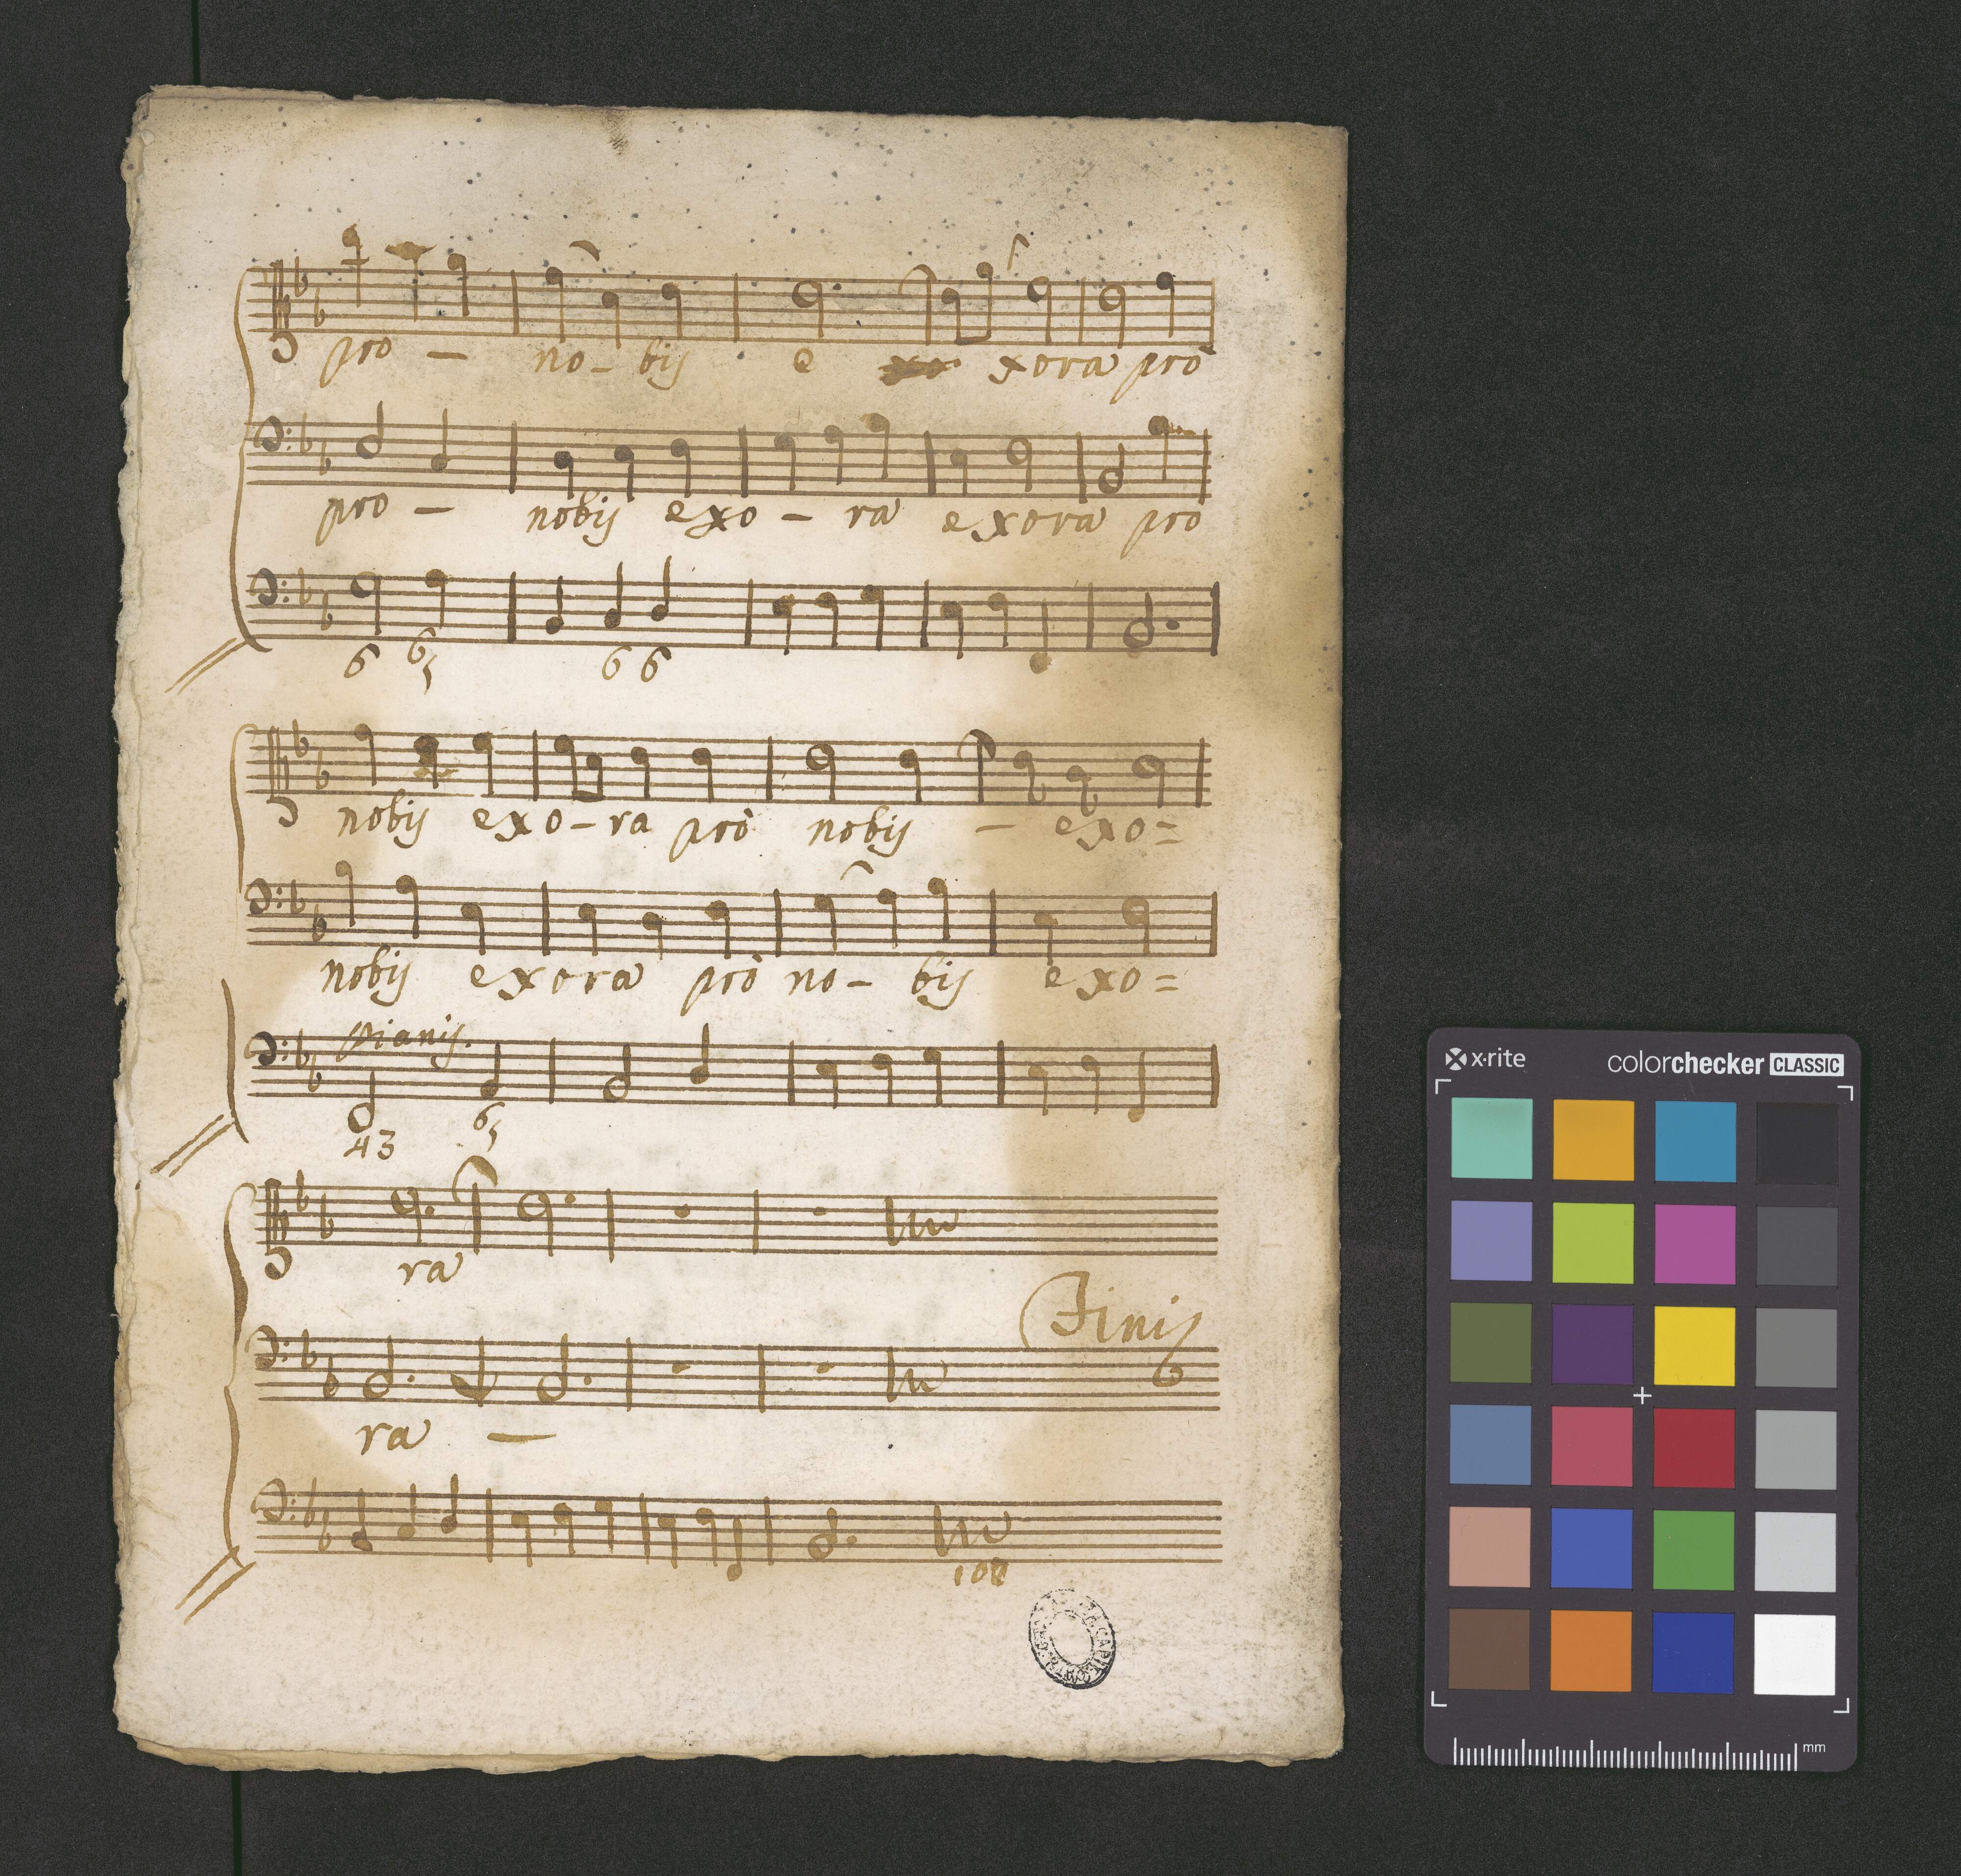 pro – no – bis e xora pro
pro – nobis exo – ra exora pro
6 65 6 6
nobis exo – ra pro nobis – exo =
nobis exora pro no – bis exo =
pianis.
43 65
ra
Finis
ra –
108
x·rite colorchecker CLASSIC
mm